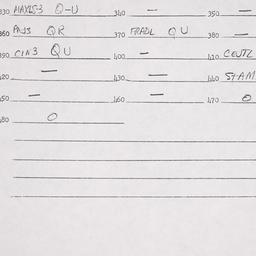 330 HAYES3 Q-U 340 — 350 —
360 PAJ3 QR 370 FRADL QU 380 —
390 CIN3 QU 400 — 410 CEUTZ
420 — 430 — 440 STAM
450 — 460 — 470 0
480 0